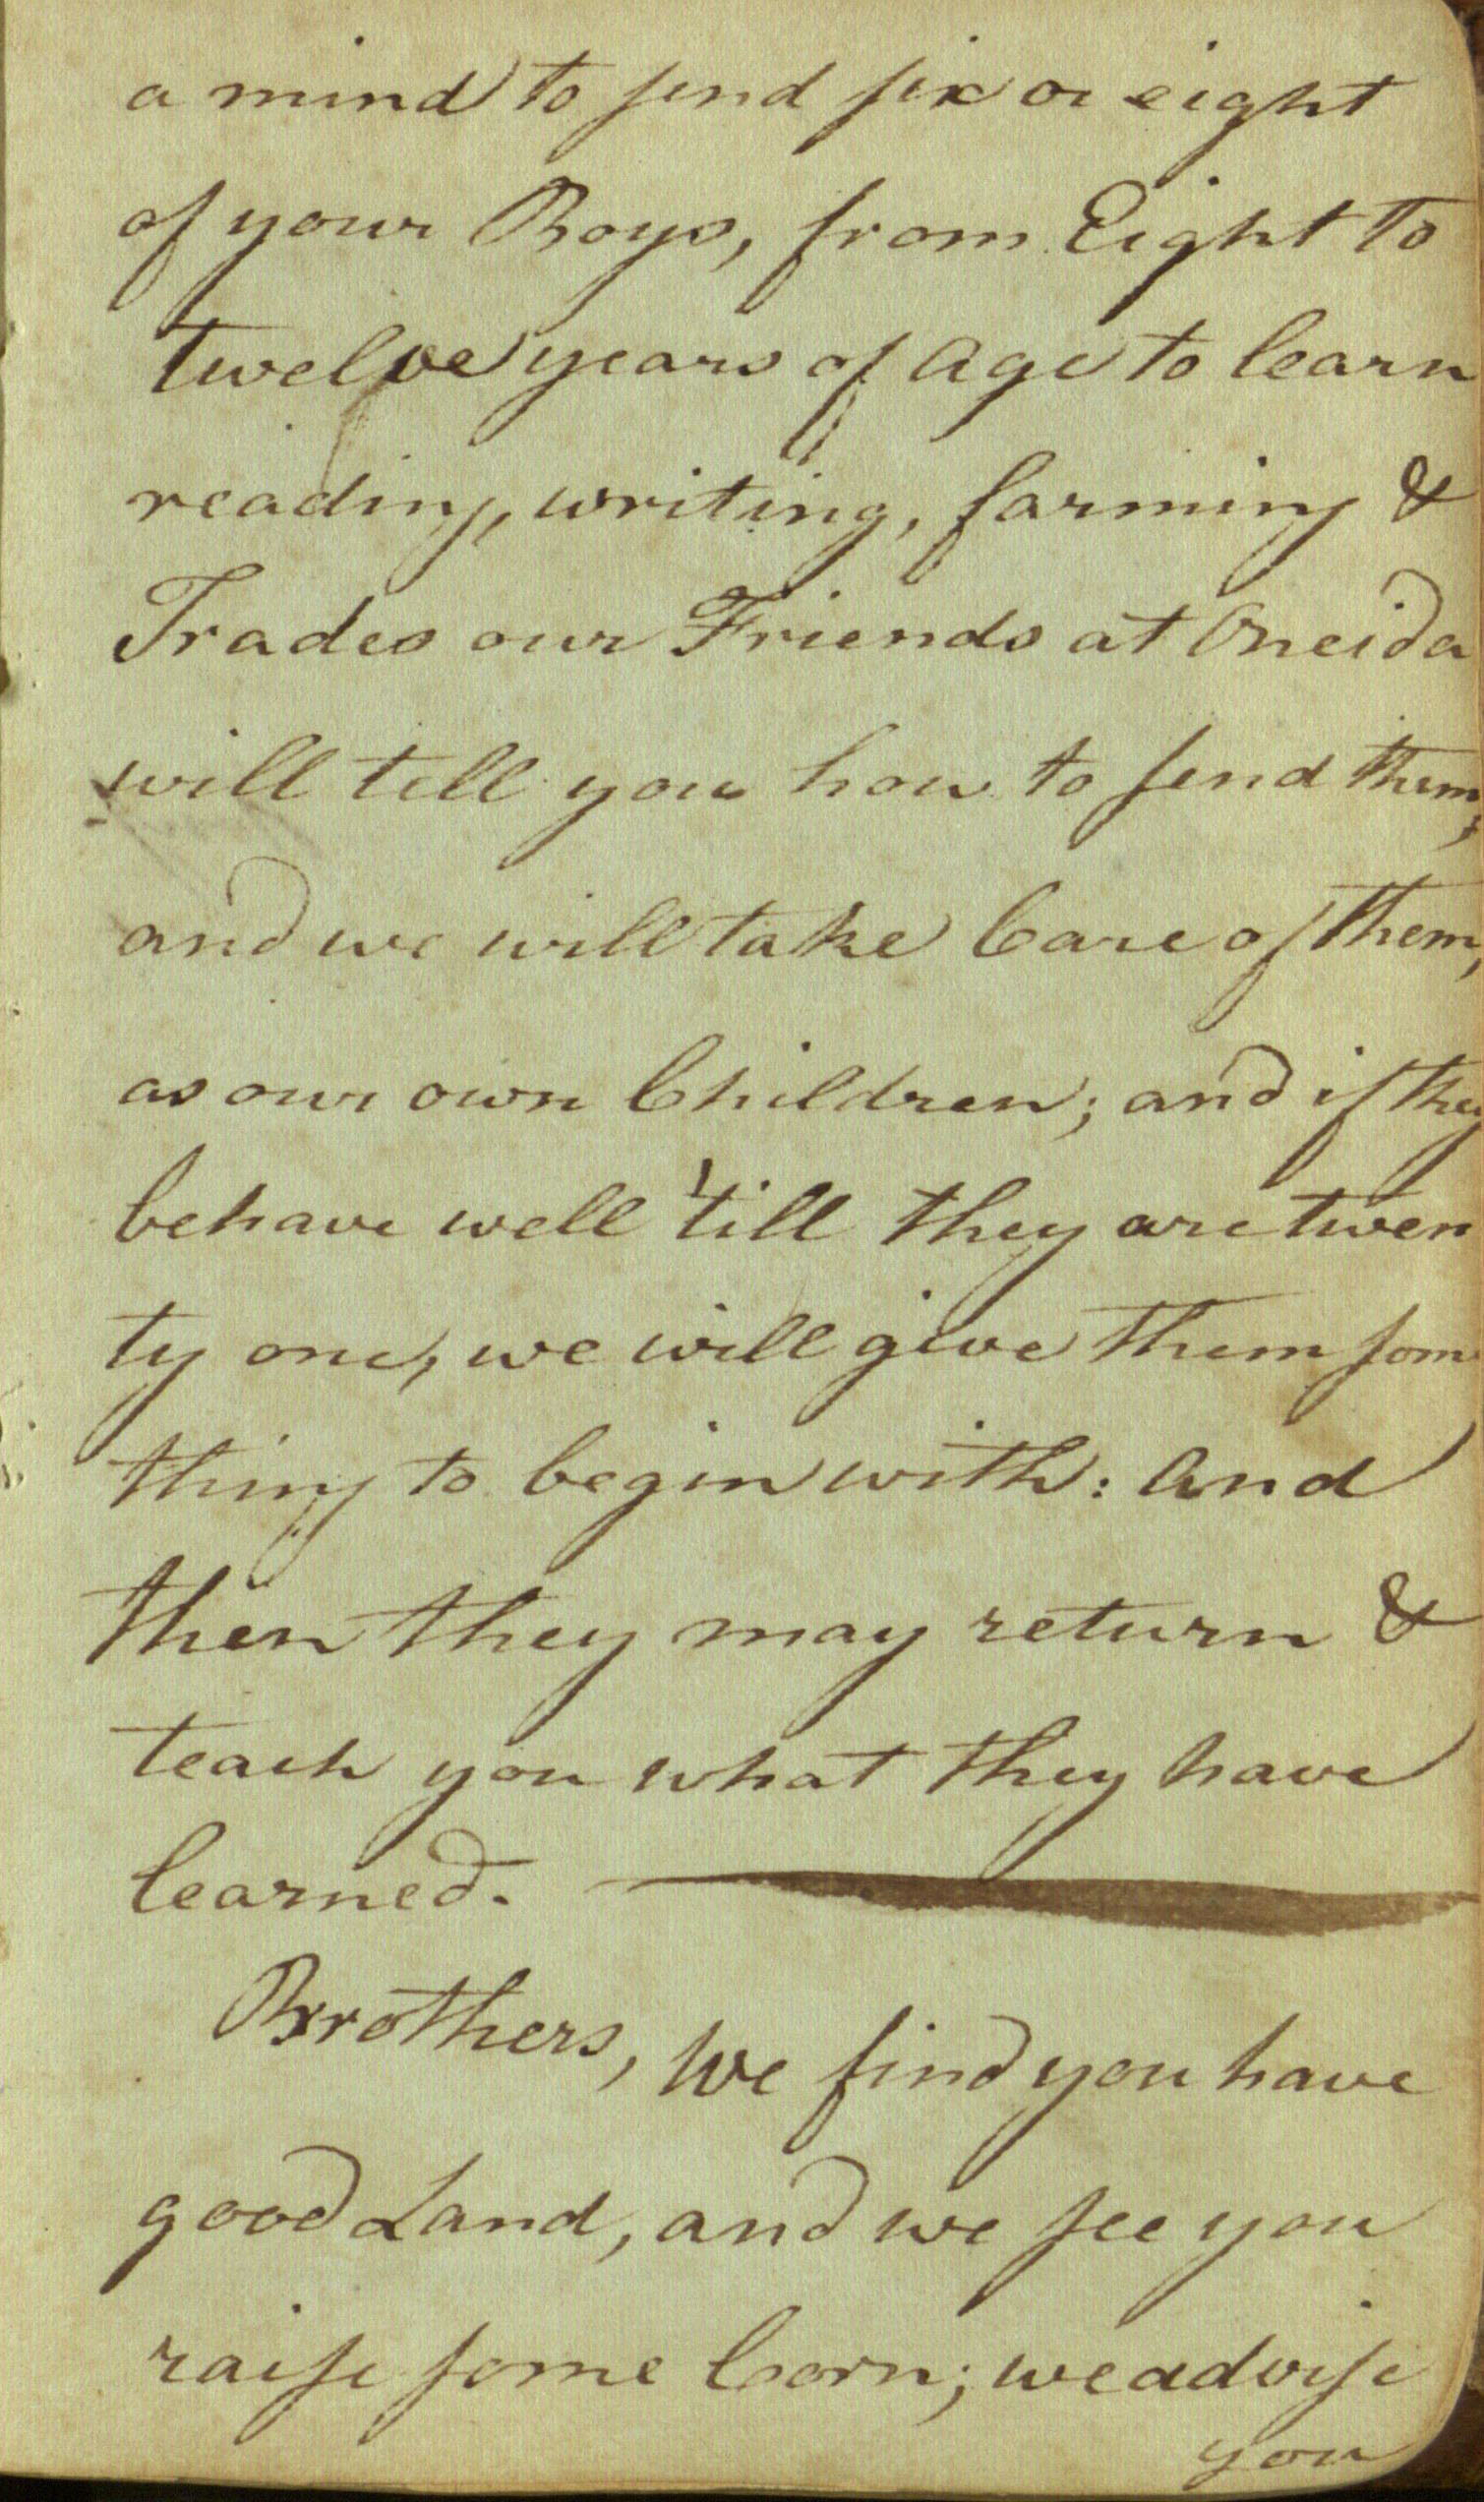 a mind to send six or eight
of your Boys, from Eight to
twelve years of age to learn
reading, writing, farming &
Trades our Friends at Oneida
will tell you how to send them,
and we will take Care of them,
as our own Children; and if they
behave well 'till they are twen
ty one, we will give them some
thing to begin with: And
then they may return &
teach you what they have
learned.
Brothers, We find you have
good Land, and we see you
raise some Corn; we advise
you